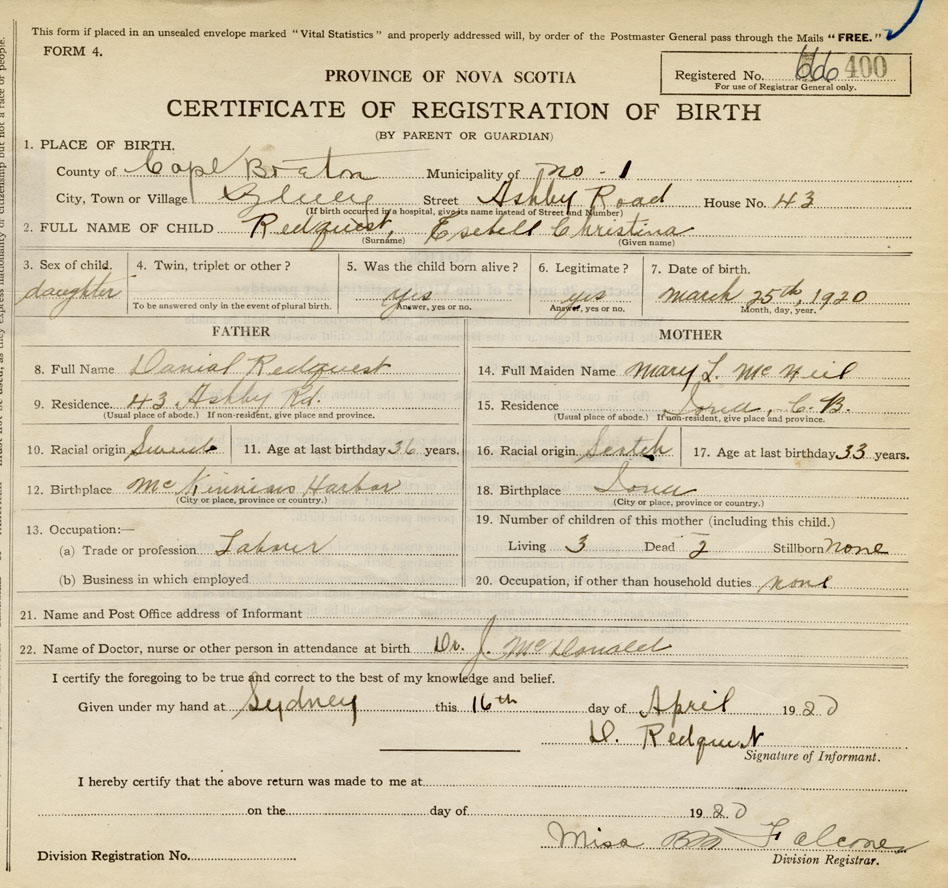 This form if placed in an unsealed envelope marked "Vital Statistics" and properly addressed will, by order of the Postmaster General pass through the Mails "FREE."
FORM 4.
PROVINCE OF NOVA SCOTIA
Registered No. 66 400
For use of Registrar General only.
CERTIFICATE OF REGISTRATION OF BIRTH
(BY PARENT OR GUARDIAN)
1. PLACE OF BIRTH.
County of Cape Breton Municipality of no - 1
City, Town or Village Street Ashby Road House No. 43
(If birth occurred in a hospital, give its name instead of Street and Number)
2. FULL NAME OF CHILD Redquest, Esebell Christina
(Surname) (Given name)
3. Sex of child. daughter
4. Twin, triplet or other?
To be answered only in the event of plural birth.
5. Was the child born alive? yes
Answer, yes or no.
6. Legitimate? yes
Answer, yes or no.
7. Date of birth. march 25th, 1920
Month, day, year.
FATHER
8. Full Name Danial Redquest
9. Residence. 43 Ashby Rd.
(Usual place of abode.) If non-resident, give place and province.
10. Racial origin 11. Age at last birthday 36 years.
12. Birthplace Mc Kinnians Harbor
(City or place, province or country.)
13. Occupation:—
(a) Trade or profession Labour
(b) Business in which employed
MOTHER
14. Full Maiden Name Mary L. Mc Neil
15. Residence Iona, C. B.
(Usual place of abode.) If non-resident, give place and province.
16. Racial origin 17. Age at last birthday 33 years.
18. Birthplace Iona
(City or place, province or country.)
19. Number of children of this mother (including this child.)
Living 3 Dead 2 Stillborn none
20. Occupation, if other than household duties none
21. Name and Post Office address of Informant
22. Name of Doctor, nurse or other person in attendance at birth Dr. J. McDonald
I certify the foregoing to be true and correct to the best of my knowledge and belief.
Given under my hand at Sydney this 16th day of April 1920
D. Redquest
Signature of Informant.
I hereby certify that the above return was made to me at
on the day of 1920
Miss Falconer
Division Registration No.
Division Registrar.